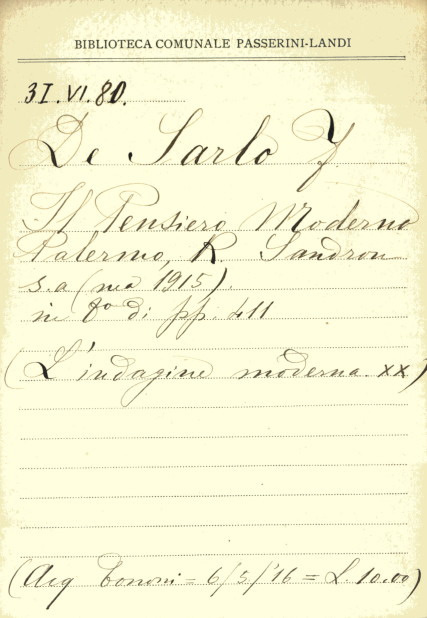 BIBLIOTECA COMUNALE PASSERINI-LANDI
3I.VI.80.
De Sarlo F.
Il Pensiero Moderno
Palermo, R. Sandron
s.a (ma 1915).
in 8º di pp. 411
(L'indagine moderna. XX)
(Acq Tononi = 6/5/'16 = L. 10.00)